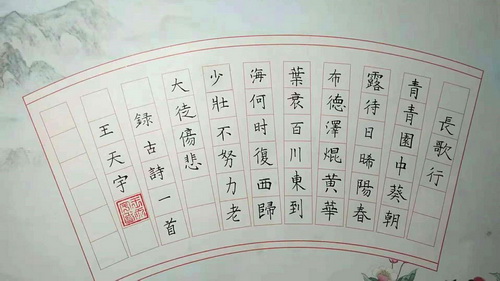 長歌行
青青園中葵朝
露待日晞陽春
布德澤焜黄華
葉衰百川東到
海何时復西歸
少壯不努力老
大徒傷悲
録古詩一首
王天宇